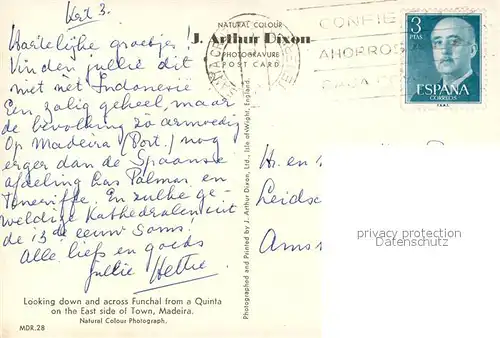 Krt 3.
Hartelijke groetjes!
Vinden jullie dit
niet nèt Indonesie
Een zalig geheel, maar
de bevolking zó armoedig
Op Madeira (Port.) nog
erger dan de Spaanse
afdeling Las Palmas en
Teneriffe. En zulke ge-
weldige Kathedralen uit
de 13de eeuw soms!
Alle liefs en goeds
jullie Hettie
Looking down and across Funchal from a Quinta
on the East side of Town, Madeira.
Natural Colour Photograph.
MDR.28
NATURAL COLOUR
J. Arthur Dixon
PHOTOGRAVURE
POST CARD
Photographed and Printed by J. Arthur Dixon, Ltd., Isle of Wight, England.
CONFIE
AHORROS
CAJA
3
PTAS
ESPAÑA
CORREOS
F.N.M.T.
H. en
Leidsc
Ams
Privatsphäre
Datenschutz